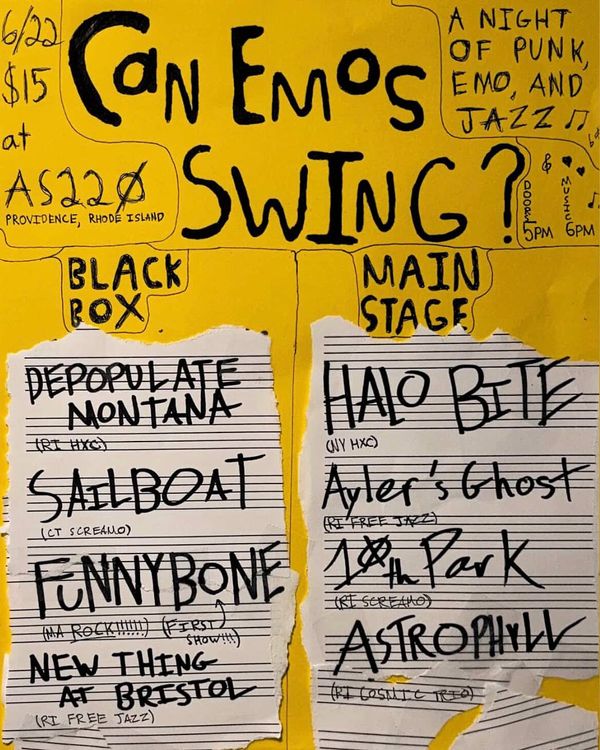 6/22
$15
at
AS220
PROVIDENCE, RHODE ISLAND
CAN EMOS
SWING?
A NIGHT
OF PUNK,
EMO, AND
JAZZ
DOORS
5PM
MUSIC
6PM
BLACK
BOX
DEPOPULATE
MONTANA
(RI HXC)
SAILBOAT
(CT SCREAMO)
FUNNYBONE
(MA ROCK!!!!!!) (FIRST
SHOW!!!)
NEW THING
AT BRISTOL
(RI FREE JAZZ)
MAIN
STAGE
HALO BITE
(NY HXC)
Ayler's Ghost
(RI FREE JAZZ)
10th Park
(RI SCREAMO)
ASTROPHYLL
(RI COSMIC TRIO)